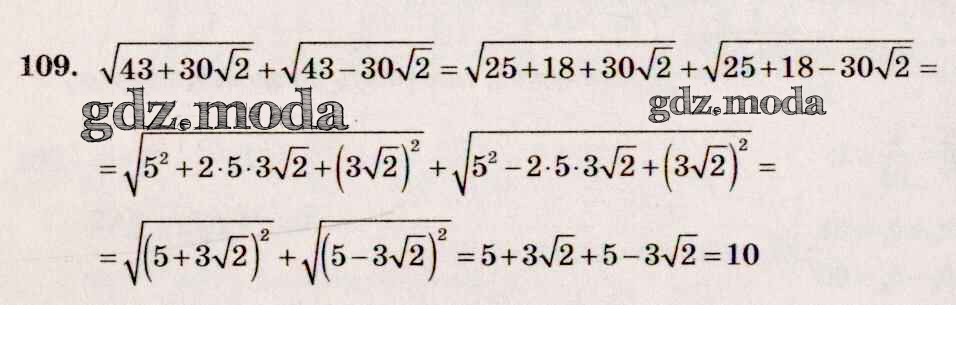 109. √(43+30√2) + √(43−30√2) = √(25+18+30√2) + √(25+18−30√2) =
gdz.moda gdz.moda
= √(5²+2·5·3√2+(3√2)²) + √(5²−2·5·3√2+(3√2)²) =
= √((5+3√2)²) + √((5−3√2)²) = 5+3√2+5−3√2=10